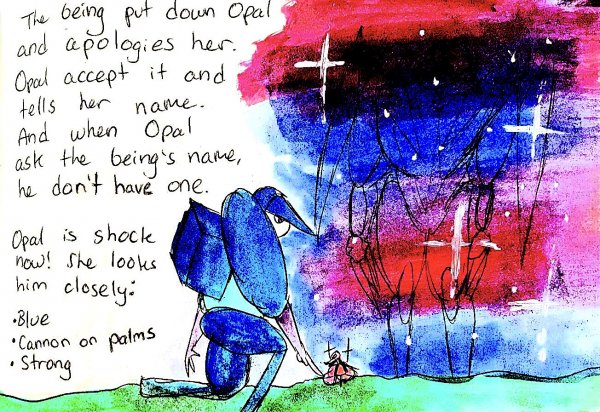 The being put down Opal
and apologies her.
Opal accept it and
tells her name.
And when Opal
ask the being's name,
he don't have one.
Opal is shock
now! She looks
him closely:
•Blue
•Cannon on palms
•Strong